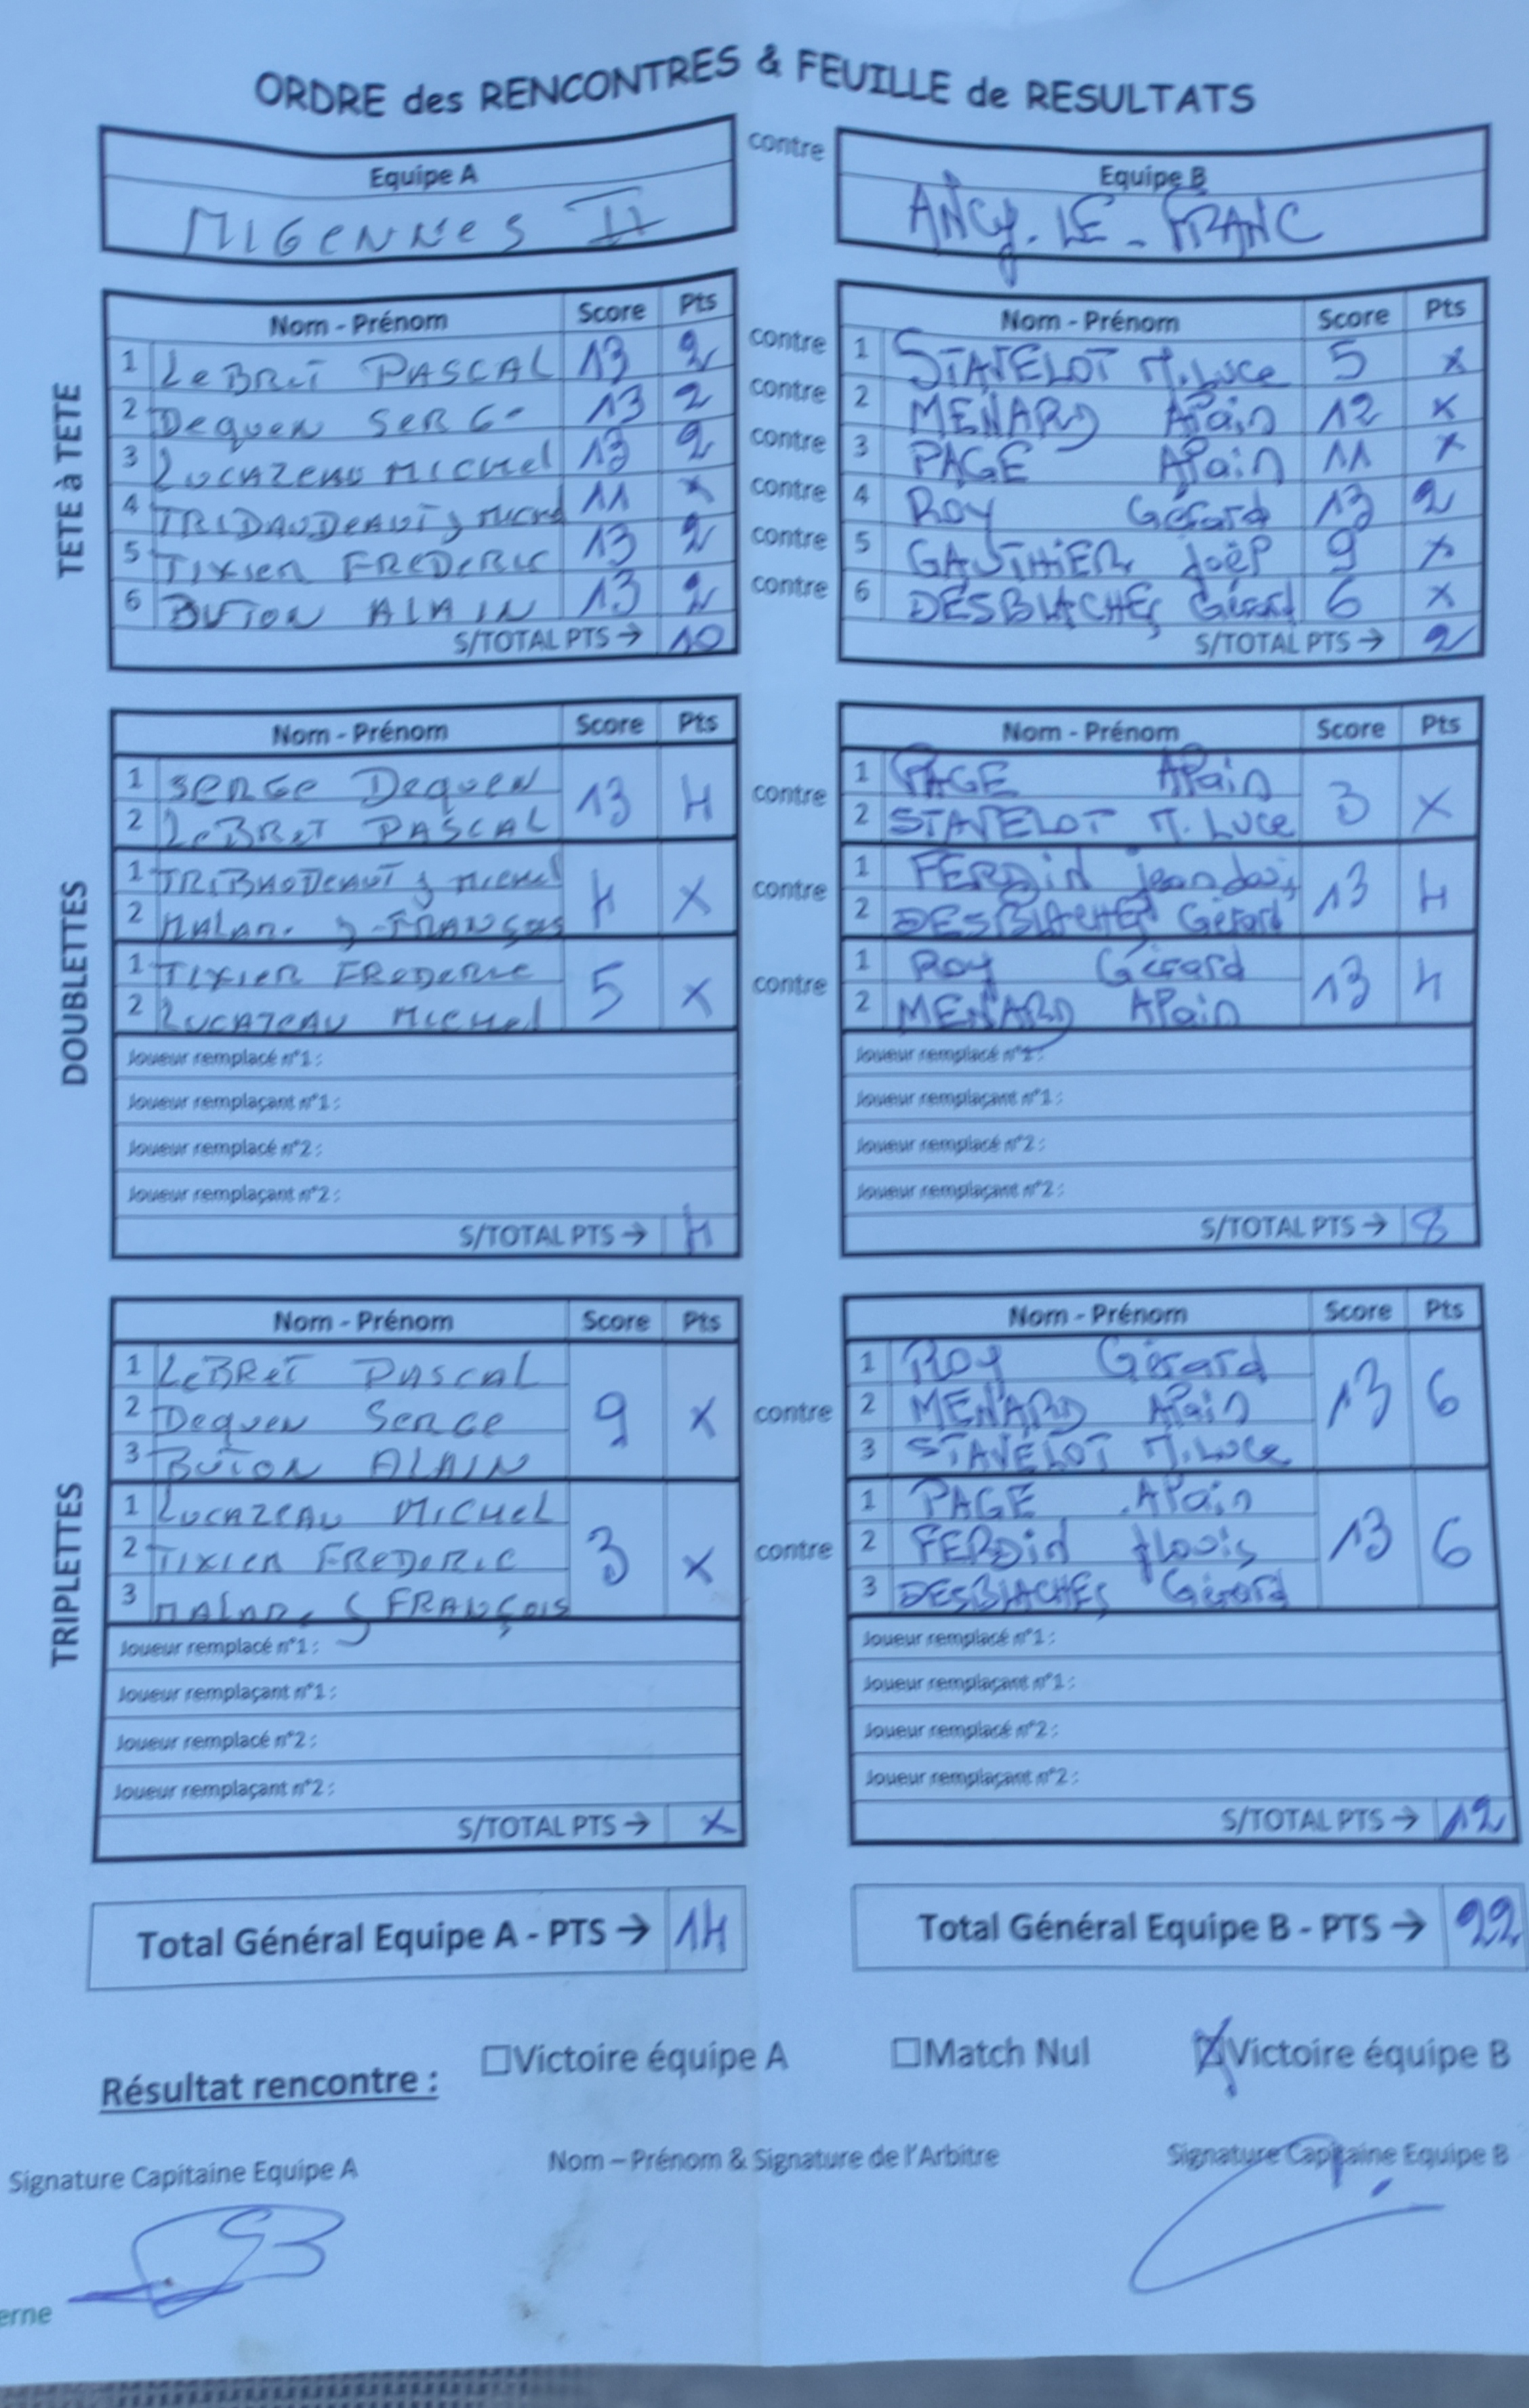 ORDRE des RENCONTRES & FEUILLE de RESULTATS
Equipe A contre Equipe B
MIGENNES II ANCY-LE-FRANC
TETE à TETE
Nom - Prénom Score Pts Nom - Prénom Score Pts
1 LeBReT PASCAL 13 2 contre 1 STAVELOT M.Luce 5 x
2 Dequen SERGe 13 2 contre 2 MENARD Alain 12 x
3 LUCAZEAU MICHel 13 2 contre 3 PAGE Alain 11 x
4 11 x contre 4 ROY Gérard 13 2
5 TIXIER FREDERIC 13 2 contre 5 GAUTHIER Joël 9 x
6 BUTON ALAIN 13 2 contre 6 DESBLACHES Gérard 6 x
S/TOTAL PTS → 10 S/TOTAL PTS → 2
DOUBLETTES
Nom - Prénom Score Pts Nom - Prénom Score Pts
1 SERGE Dequen 13 4 contre 1 PAGE Alain 3 X
2 LeBReT PASCAL 2 STAVELOT M. Luce
1 4 X contre 1 FERDIN 13 4
2 FRANÇOIS 2 DESBLACHES Gérard
1 TIXIER FREDERIC 5 X contre 1 ROY Gérard 13 4
2 LUCAZEAU MICHel 2 MENARD Alain
Joueur remplacé n°1 : Joueur remplacé n°1 :
Joueur remplaçant n°1 : Joueur remplaçant n°1 :
Joueur remplacé n°2 : Joueur remplacé n°2 :
Joueur remplaçant n°2 : Joueur remplaçant n°2 :
S/TOTAL PTS → 4 S/TOTAL PTS → 8
TRIPLETTES
Nom - Prénom Score Pts Nom - Prénom Score Pts
1 LeBReT PASCAL 9 x contre 1 ROY Gérard 13 6
2 Dequen SERGE 2 MENARD Alain
3 BUTON ALAIN 3 STAVELOT M.Luce
1 LUCAZEAU MICHel 3 x contre 1 PAGE Alain 13 6
2 TIXIER FREDERIC 2 FERDIN JLouis
3 FRANÇOIS 3 DESBLACHES Gérard
Joueur remplacé n°1 : Joueur remplacé n°1 :
Joueur remplaçant n°1 : Joueur remplaçant n°1 :
Joueur remplacé n°2 : Joueur remplacé n°2 :
Joueur remplaçant n°2 : Joueur remplaçant n°2 :
S/TOTAL PTS → X S/TOTAL PTS → 12
Total Général Equipe A - PTS → 14 Total Général Equipe B - PTS → 22
Résultat rencontre : Victoire équipe A Match Nul Victoire équipe B
Signature Capitaine Equipe A Nom – Prénom & Signature de l'Arbitre Signature Capitaine Equipe B
erne